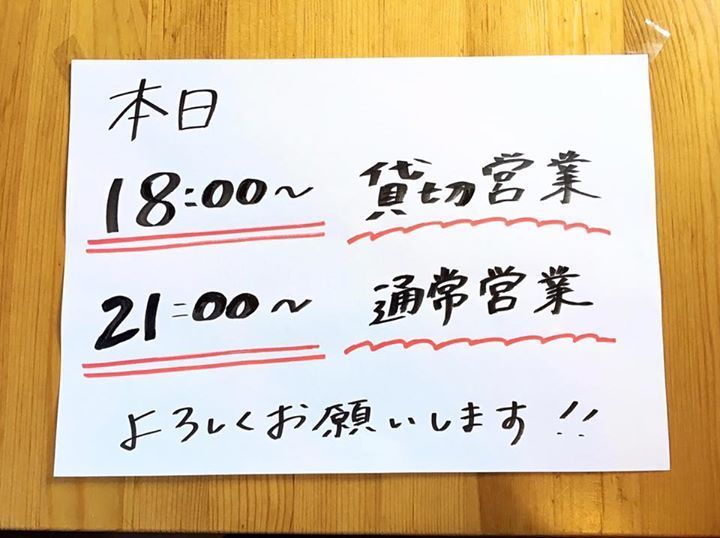 本日
18:00～ 貸切営業
21:00～ 通常営業
よろしくお願いします!!